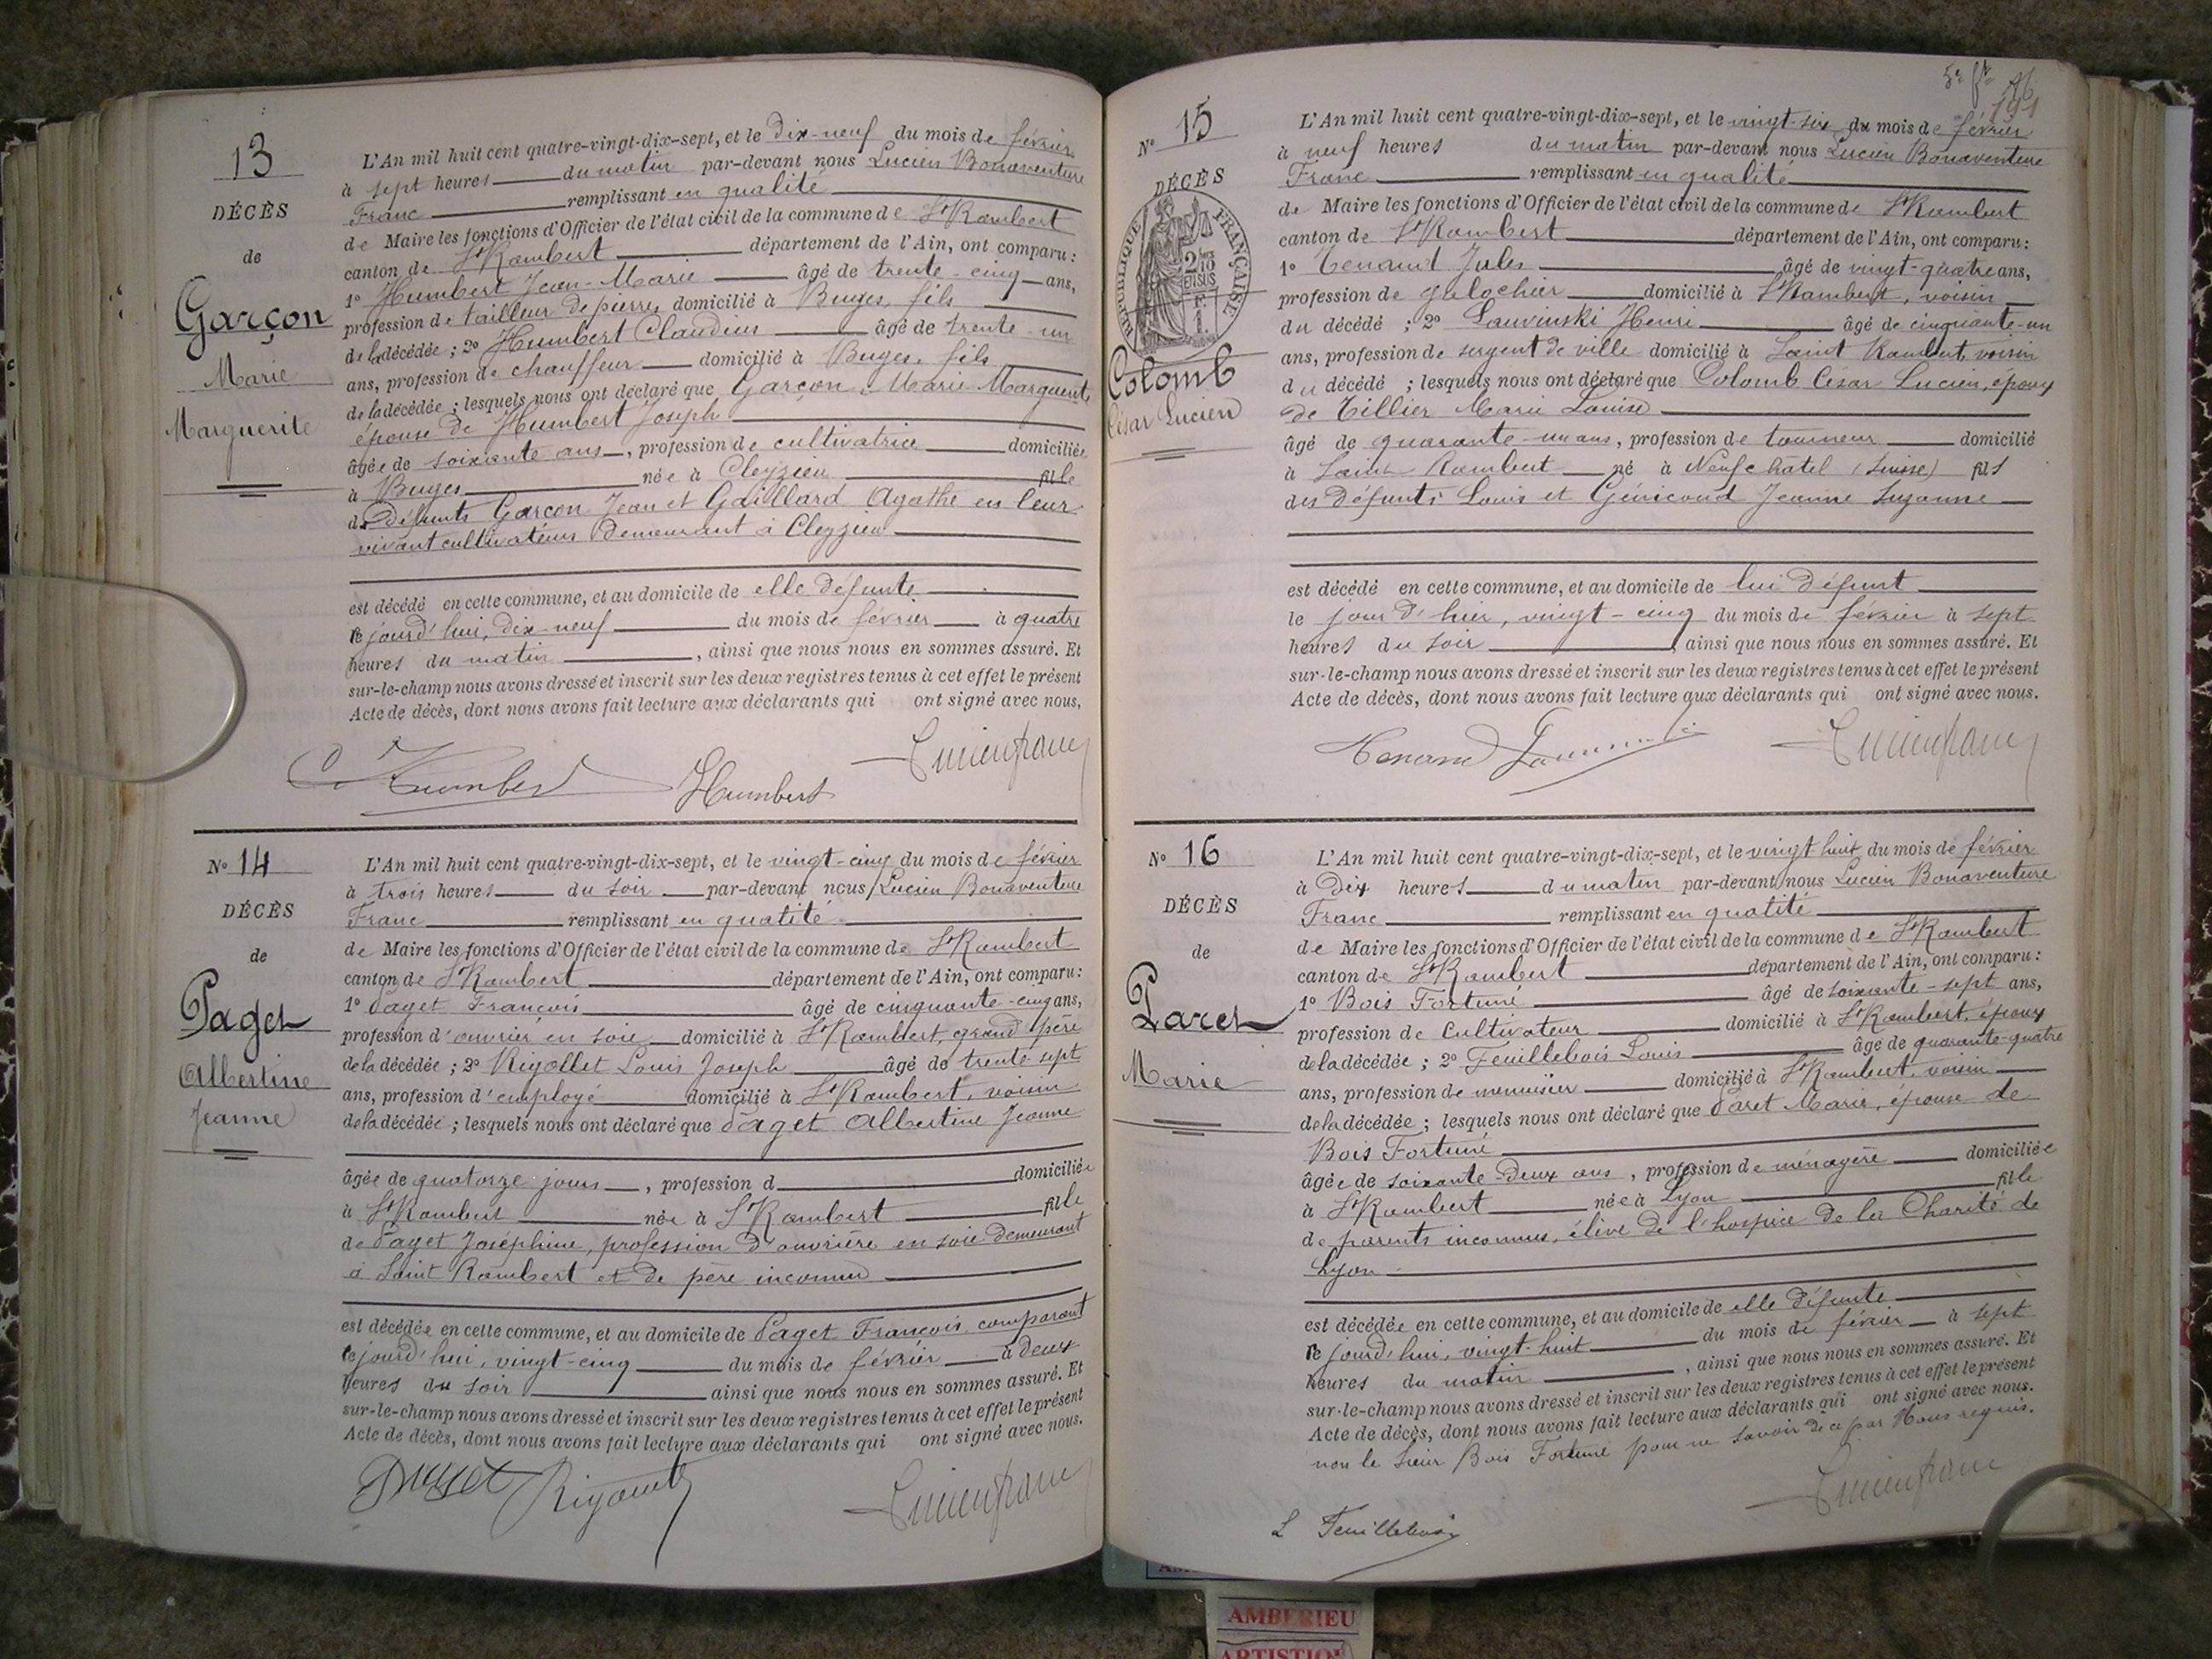 13
DÉCÈS
de
Garçon
Marie
Marguerite
L'An mil huit cent quatre-vingt-dix-sept, et le dix-neuf du mois de février
à sept heures du matin par-devant nous Lucien Bonaventure
Franc remplissant en qualité
de Maire les fonctions d'Officier de l'état civil de la commune de St Rambert
canton de St Rambert département de l'Ain, ont comparu :
1° Humbert Jean-Marie âgé de trente-cinq ans,
profession de tailleur de pierres domicilié à Buges, fils
de la décédée ; 2° Humbert Claudius âgé de trente-un
ans, profession de chauffeur domicilié à Buges, fils
de la décédée ; lesquels nous ont déclaré que Garçon Marie Marguerite
épouse de Humbert Joseph
âgée de soixante ans, profession de cultivatrice domiciliée
à Buges née à Cleyzieu fille
des défunts Garçon Jean et Gaillard Agathe en leur
vivant cultivateurs demeurant à Cleyzieu
est décédé en cette commune, et au domicile de elle défunte
ce jourd'hui, dix-neuf du mois de février à quatre
heures du matin, ainsi que nous nous en sommes assuré. Et
sur-le-champ nous avons dressé et inscrit sur les deux registres tenus à cet effet le présent
Acte de décès, dont nous avons fait lecture aux déclarants qui ont signé avec nous,
C Humbert Humbert Lucien franc
N° 14
DÉCÈS
de
Paget
Albertine
Jeanne
L'An mil huit cent quatre-vingt-dix-sept, et le vingt-cinq du mois de février
à trois heures du soir par-devant nous Lucien Bonaventure
Franc remplissant en qualité
de Maire les fonctions d'Officier de l'état civil de la commune de St Rambert
canton de St Rambert département de l'Ain, ont comparu :
1° Paget François âgé de cinquante-cinq ans,
profession d'ouvrier en soie domicilié à St Rambert, grand père
de la décédée ; 2° Rigollet Louis Joseph âgé de trente-sept
ans, profession d'employé domicilié à St Rambert, voisin
de la décédée ; lesquels nous ont déclaré que Paget Albertine Jeanne
âgée de quatorze jours, profession d domiciliée
à St Rambert née à St Rambert fille
de Paget Joséphine, profession d'ouvrière en soie demeurant
à Saint Rambert et de père inconnu
est décédée en cette commune, et au domicile de Paget François, comparant
ce jourd'hui, vingt-cinq du mois de février à deux
heures du soir ainsi que nous nous en sommes assuré. Et
sur-le-champ nous avons dressé et inscrit sur les deux registres tenus à cet effet le présent
Acte de décès, dont nous avons fait lecture aux déclarants qui ont signé avec nous.
Paget Lucien franc
191
N° 15
DÉCÈS
RÉPUBLIQUE FRANÇAISE
2/10
EN SUS
1 F
Colomb
César Lucien
L'An mil huit cent quatre-vingt-dix-sept, et le vingt-six du mois de février
à neuf heures du matin par-devant nous Lucien Bonaventure
Franc remplissant en qualité
de Maire les fonctions d'Officier de l'état civil de la commune de St Rambert
canton de St Rambert département de l'Ain, ont comparu :
1° Tenand Jules âgé de vingt-quatre ans,
profession de galochier domicilié à St Rambert, voisin
du décédé ; 2° Lauvinski Henri âgé de cinquante-un
ans, profession de sergent de ville domicilié à Saint Rambert, voisin
du décédé ; lesquels nous ont déclaré que Colomb César Lucien, époux
de Tillier Marie Louise
âgé de quarante-un ans, profession de tourneur domicilié
à Saint Rambert né à Neufchâtel (Suisse) fils
des défunts Louis et Génicoud Jeanne Suzanne
est décédé en cette commune, et au domicile de lui défunt
le jour d'hier, vingt-cinq du mois de février à sept
heures du soir, ainsi que nous nous en sommes assuré. Et
sur-le-champ nous avons dressé et inscrit sur les deux registres tenus à cet effet le présent
Acte de décès, dont nous avons fait lecture aux déclarants qui ont signé avec nous.
Tenand Lucien franc
N° 16
DÉCÈS
de
Paret
Marie
L'An mil huit cent quatre-vingt-dix-sept, et le vingt huit du mois de février
à dix heures du matin par-devant nous Lucien Bonaventure
Franc remplissant en qualité
de Maire les fonctions d'Officier de l'état civil de la commune de St Rambert
canton de St Rambert département de l'Ain, ont comparu :
1° Bois Fortuné âgé de soixante-sept ans,
profession de cultivateur domicilié à St Rambert, époux
de la décédée ; 2° Feuillebois Louis âgé de quarante-quatre
ans, profession de menuisier domicilié à St Rambert, voisin
de la décédée ; lesquels nous ont déclaré que Paret Marie, épouse de
Bois Fortuné
âgée de soixante-deux ans, profession de ménagère domiciliée
à St Rambert née à Lyon fille
de parents inconnus, élève de l'hospice de la Charité de
Lyon
est décédée en cette commune, et au domicile de elle défunte
ce jourd'hui, vingt-huit du mois de février à sept
heures du matin, ainsi que nous nous en sommes assuré. Et
sur-le-champ nous avons dressé et inscrit sur les deux registres tenus à cet effet le présent
Acte de décès, dont nous avons fait lecture aux déclarants qui ont signé avec nous.
non le sieur Bois Fortuné pour ne savoir de ce par Nous requis.
Lucien franc
L Feuillebois
AMBERIEU
ARTISTIQ